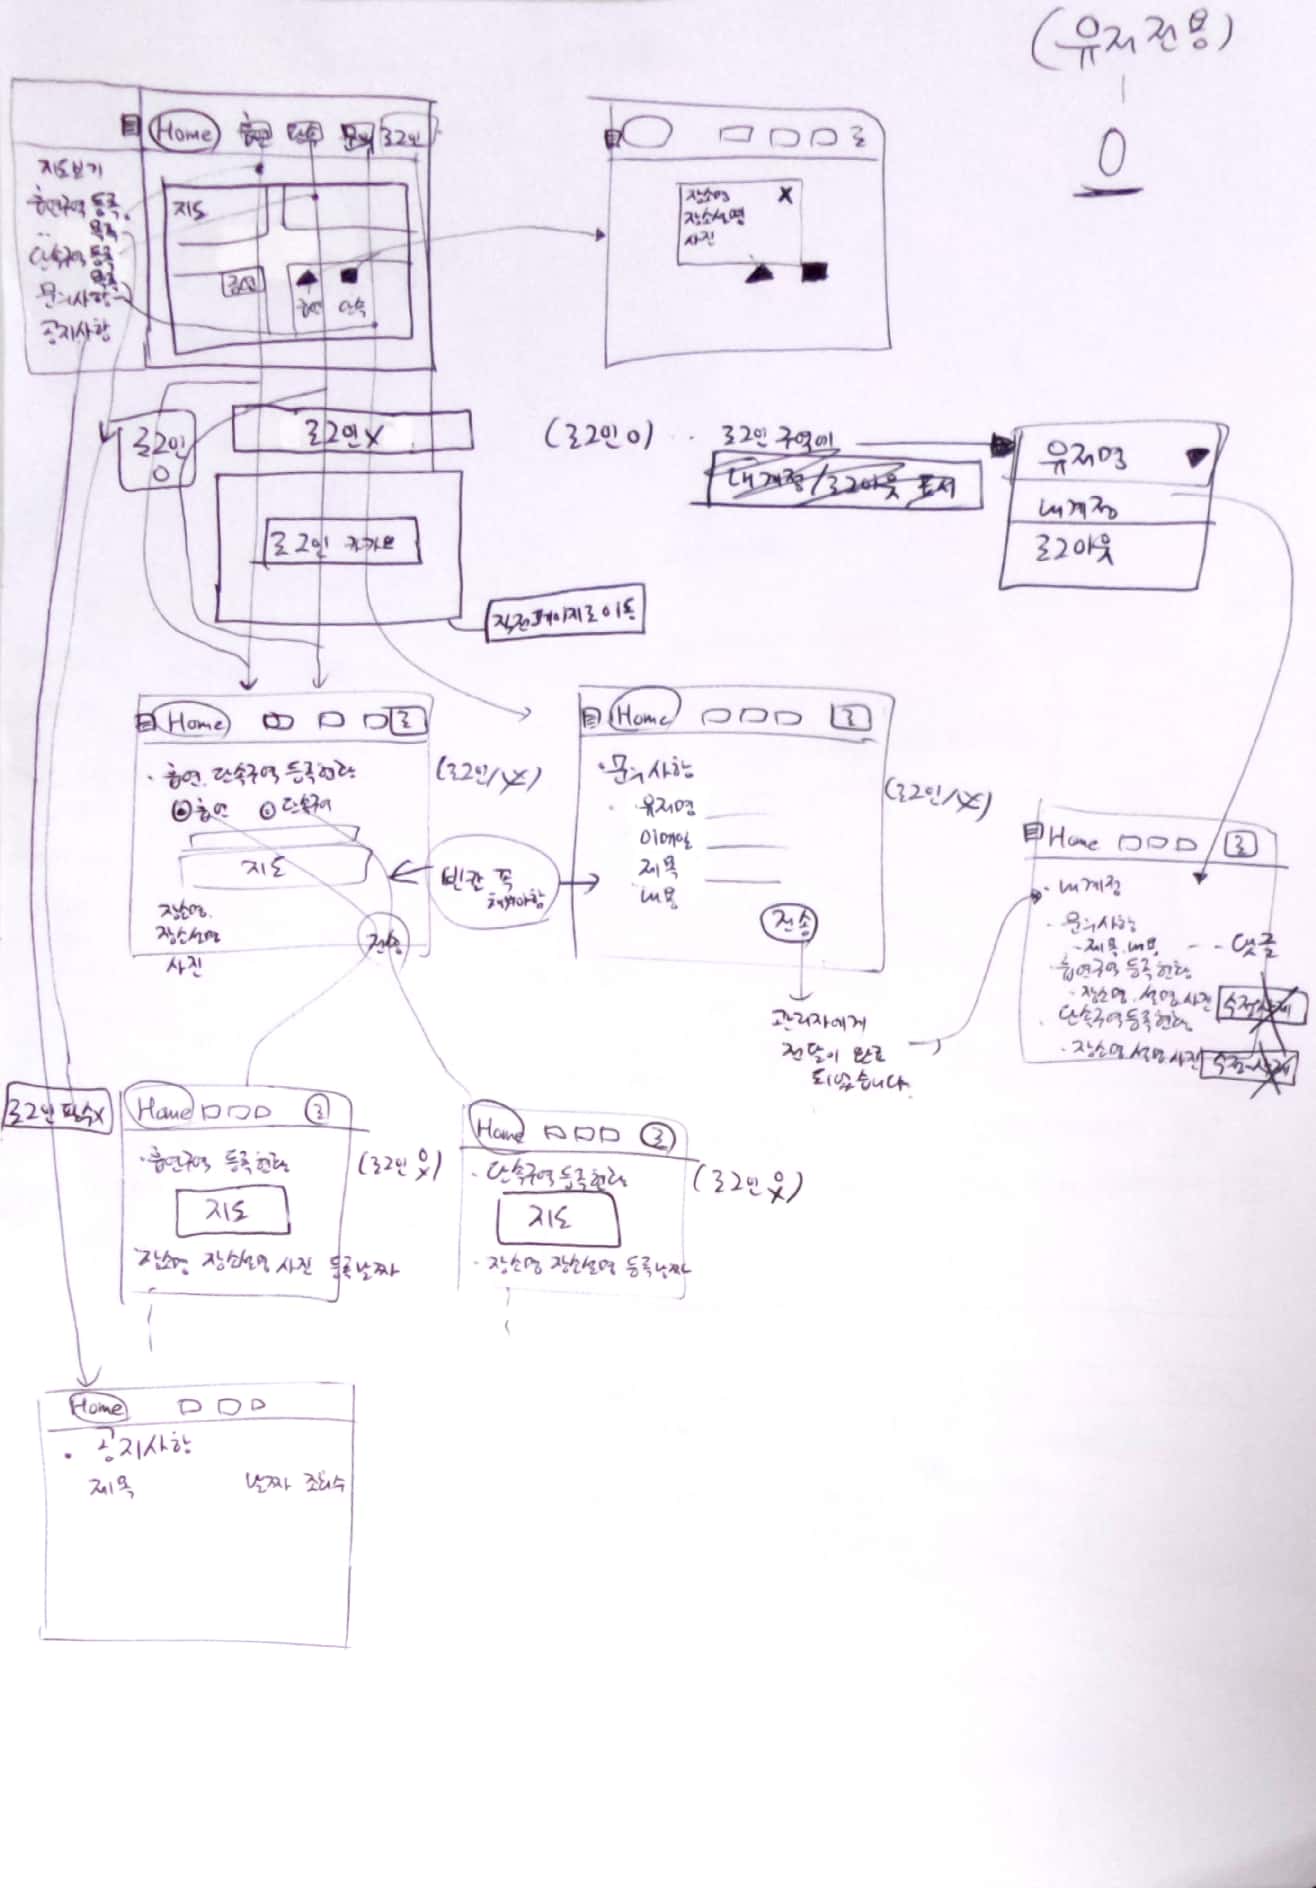 (유저전용)
Home 흡연 단속 문의 로그인
지도보기
흡연구역 등록
〃 목록
단속구역 등록
목록
문의사항
공지사항
지도
흡연 단속
로
장소명 X
장소설명
사진
로그인
O
로그인X
로그인 카카오
직전페이지로 이동
(로그인 O) ‥ 로그인 구역에
내계정/로그아웃 표시
유저명
내계정
로그아웃
Home 로
· 흡연. 단속구역 등록현황
흡연 단속구역
지도
장소명.
장소설명
사진
전송
(로그인/X)
빈칸 꼭
채워야함
Home 로
· 문의사항
· 유저명
이메일
제목
내용
전송
(로그인/X)
관리자에게
전달이 완료
되었습니다.
Home 로
· 내계정
· 문의사항
- 제목.내용 --- 댓글
· 흡연구역 등록현황
- 장소명. 설명 사진 수정삭제
· 단속구역등록현황
- 장소명 설명 사진 수정삭제
로그인 필수X
Home 로
· 흡연구역 등록현황
지도
장소명 장소설명 사진 등록날짜
(로그인 O X)
Home 로
· 단속구역등록현황
지도
· 장소명 장소설명 등록날짜
(로그인 O X)
Home
· 공지사항
제목 날짜 조회수